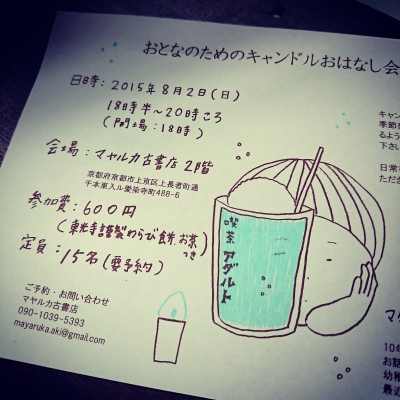 おとなのためのキャンドルおはなし会
日時：2015年8月2日（日）
18時半～20時ころ
（開場：18時）
会場：マヤルカ古書店 2階
京都府京都市上京区上長者町通
千本東入ル愛染寺町488-6
参加費：600円
（東光寺謹製わらび餅、お茶つき）
定員：15名（要予約）
ご予約・お問い合わせ
マヤルカ古書店
090-1039-5393
mayaruka.aki@gmail.com
喫茶
アダルト
キャン
季節を
るよう
下さい
日常
ただき
マ
10年
お話
幼稚
最近